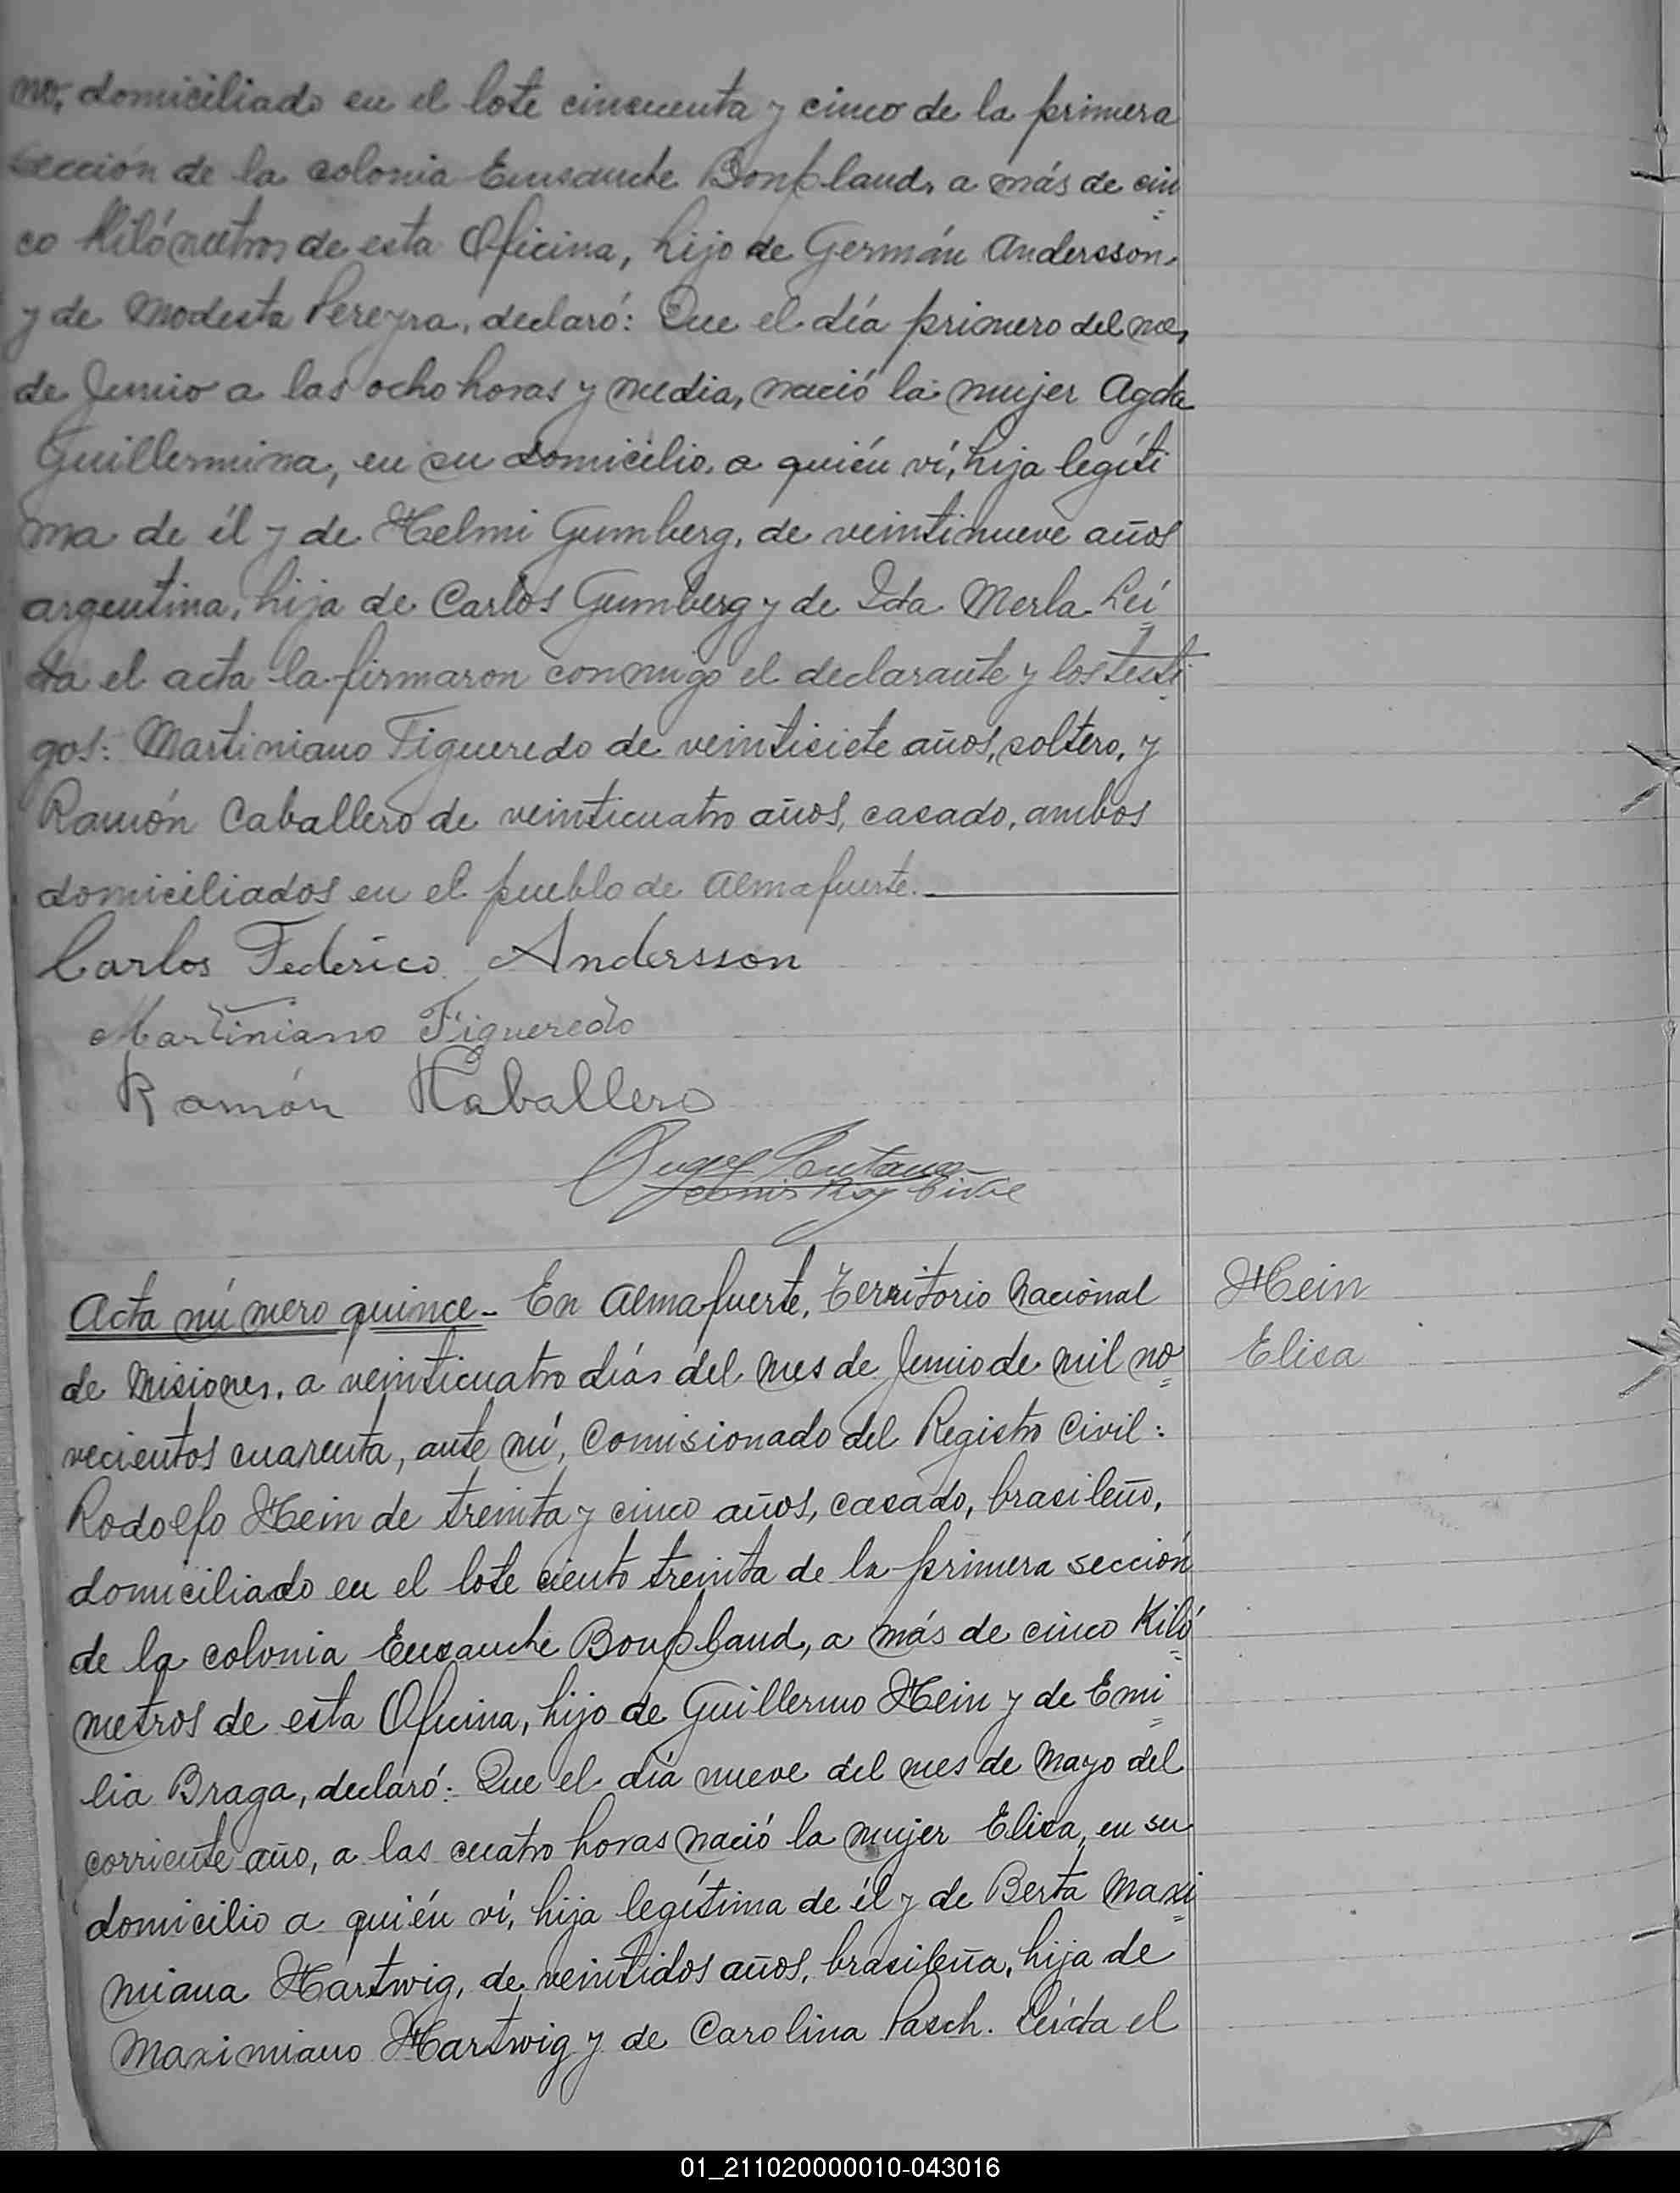 no, domiciliado en el lote cincuenta y cinco de la primera
sección de la colonia Ensanche Bonpland, a más de cin
co Kilómetros de esta Oficina, hijo de Germán Andersson
y de Modesta Pereyra, declaró: Que el día primero del mes
de Junio a las ocho horas y media, nació la mujer Agda
Guillermina, en su domicilio, a quién ví, hija legíti
ma de él y de Helmi Gumberg, de veintinueve años
argentina, hija de Carlos Gumberg y de Ida Merla. Leí
da el acta la firmaron conmigo el declarante y los testi
gos: Martiniano Figueredo de veintisiete años, soltero, y
Ramón Caballero de veinticuatro años, casado, ambos
domiciliados en el pueblo de Almafuerte.
Carlos Federico Andersson
Martiniano Figueredo
Ramón Caballero
Comis Reg Civil
Acta número quince - En Almafuerte, Territorio Nacional
Hein
de Misiones, a veinticuatro días del mes de Junio de mil no
Elisa
vecientos cuarenta, ante mí, Comisionado del Registro Civil:
Rodolfo Hein de treinta y cinco años, casado, brasileño,
domiciliado en el lote ciento treinta de la primera sección
de la colonia Ensanche Bonpland, a más de cinco Kiló
metros de esta Oficina, hijo de Guillermo Hein y de Emi
lia Braga, declaró: Que el día nueve del mes de Mayo del
corriente año, a las cuatro horas nació la mujer Elisa, en su
domicilio a quién ví, hija legítima de él y de Berta Maxi
miana Hartwig, de veintidos años, brasileña, hija de
Maximiano Hartwig y de Carolina Pasch. Leída el
01_211020000010-043016